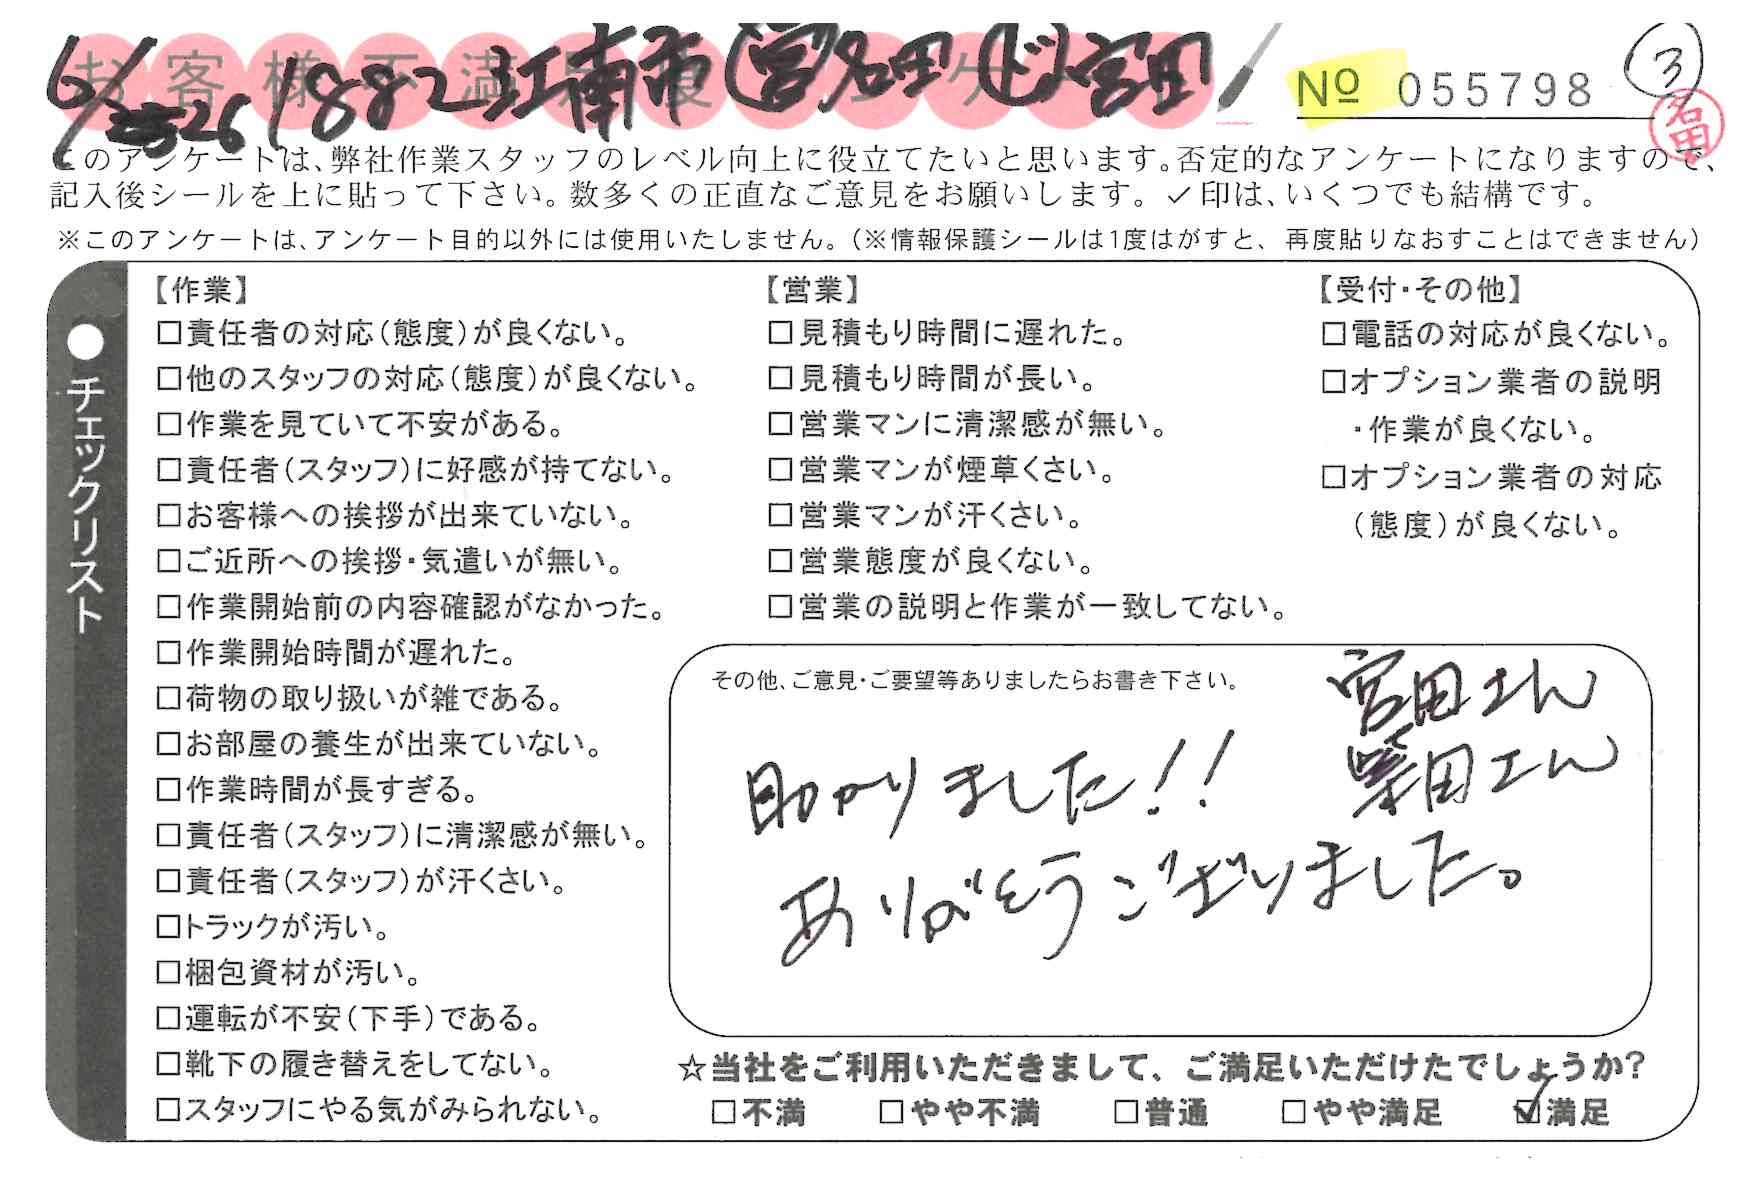 お客様不満足度
6/26 1882 江南市 宮 名田 ド 宮田
№ 055798 ③
名田
このアンケートは、弊社作業スタッフのレベル向上に役立てたいと思います。否定的なアンケートになりますので、
記入後シールを上に貼って下さい。数多くの正直なご意見をお願いします。✓印は、いくつでも結構です。
※このアンケートは、アンケート目的以外には使用いたしません。(※情報保護シールは1度はがすと、再度貼りなおすことはできません)
●チェックリスト
【作業】
□責任者の対応(態度)が良くない。
□他のスタッフの対応(態度)が良くない。
□作業を見ていて不安がある。
□責任者(スタッフ)に好感が持てない。
□お客様への挨拶が出来ていない。
□ご近所への挨拶・気遣いが無い。
□作業開始前の内容確認がなかった。
□作業開始時間が遅れた。
□荷物の取り扱いが雑である。
□お部屋の養生が出来ていない。
□作業時間が長すぎる。
□責任者(スタッフ)に清潔感が無い。
□責任者(スタッフ)が汗くさい。
□トラックが汚い。
□梱包資材が汚い。
□運転が不安(下手)である。
□靴下の履き替えをしてない。
□スタッフにやる気がみられない。
【営業】
□見積もり時間に遅れた。
□見積もり時間が長い。
□営業マンに清潔感が無い。
□営業マンが煙草くさい。
□営業マンが汗くさい。
□営業態度が良くない。
□営業の説明と作業が一致してない。
【受付・その他】
□電話の対応が良くない。
□オプション業者の説明
・作業が良くない。
□オプション業者の対応
(態度)が良くない。
その他、ご意見・ご要望等ありましたらお書き下さい。
宮田さん
柴田さん
助かりました!!
ありがとうございました。
☆当社をご利用いただきまして、ご満足いただけたでしょうか?
□不満 □やや不満 □普通 □やや満足 ☑満足